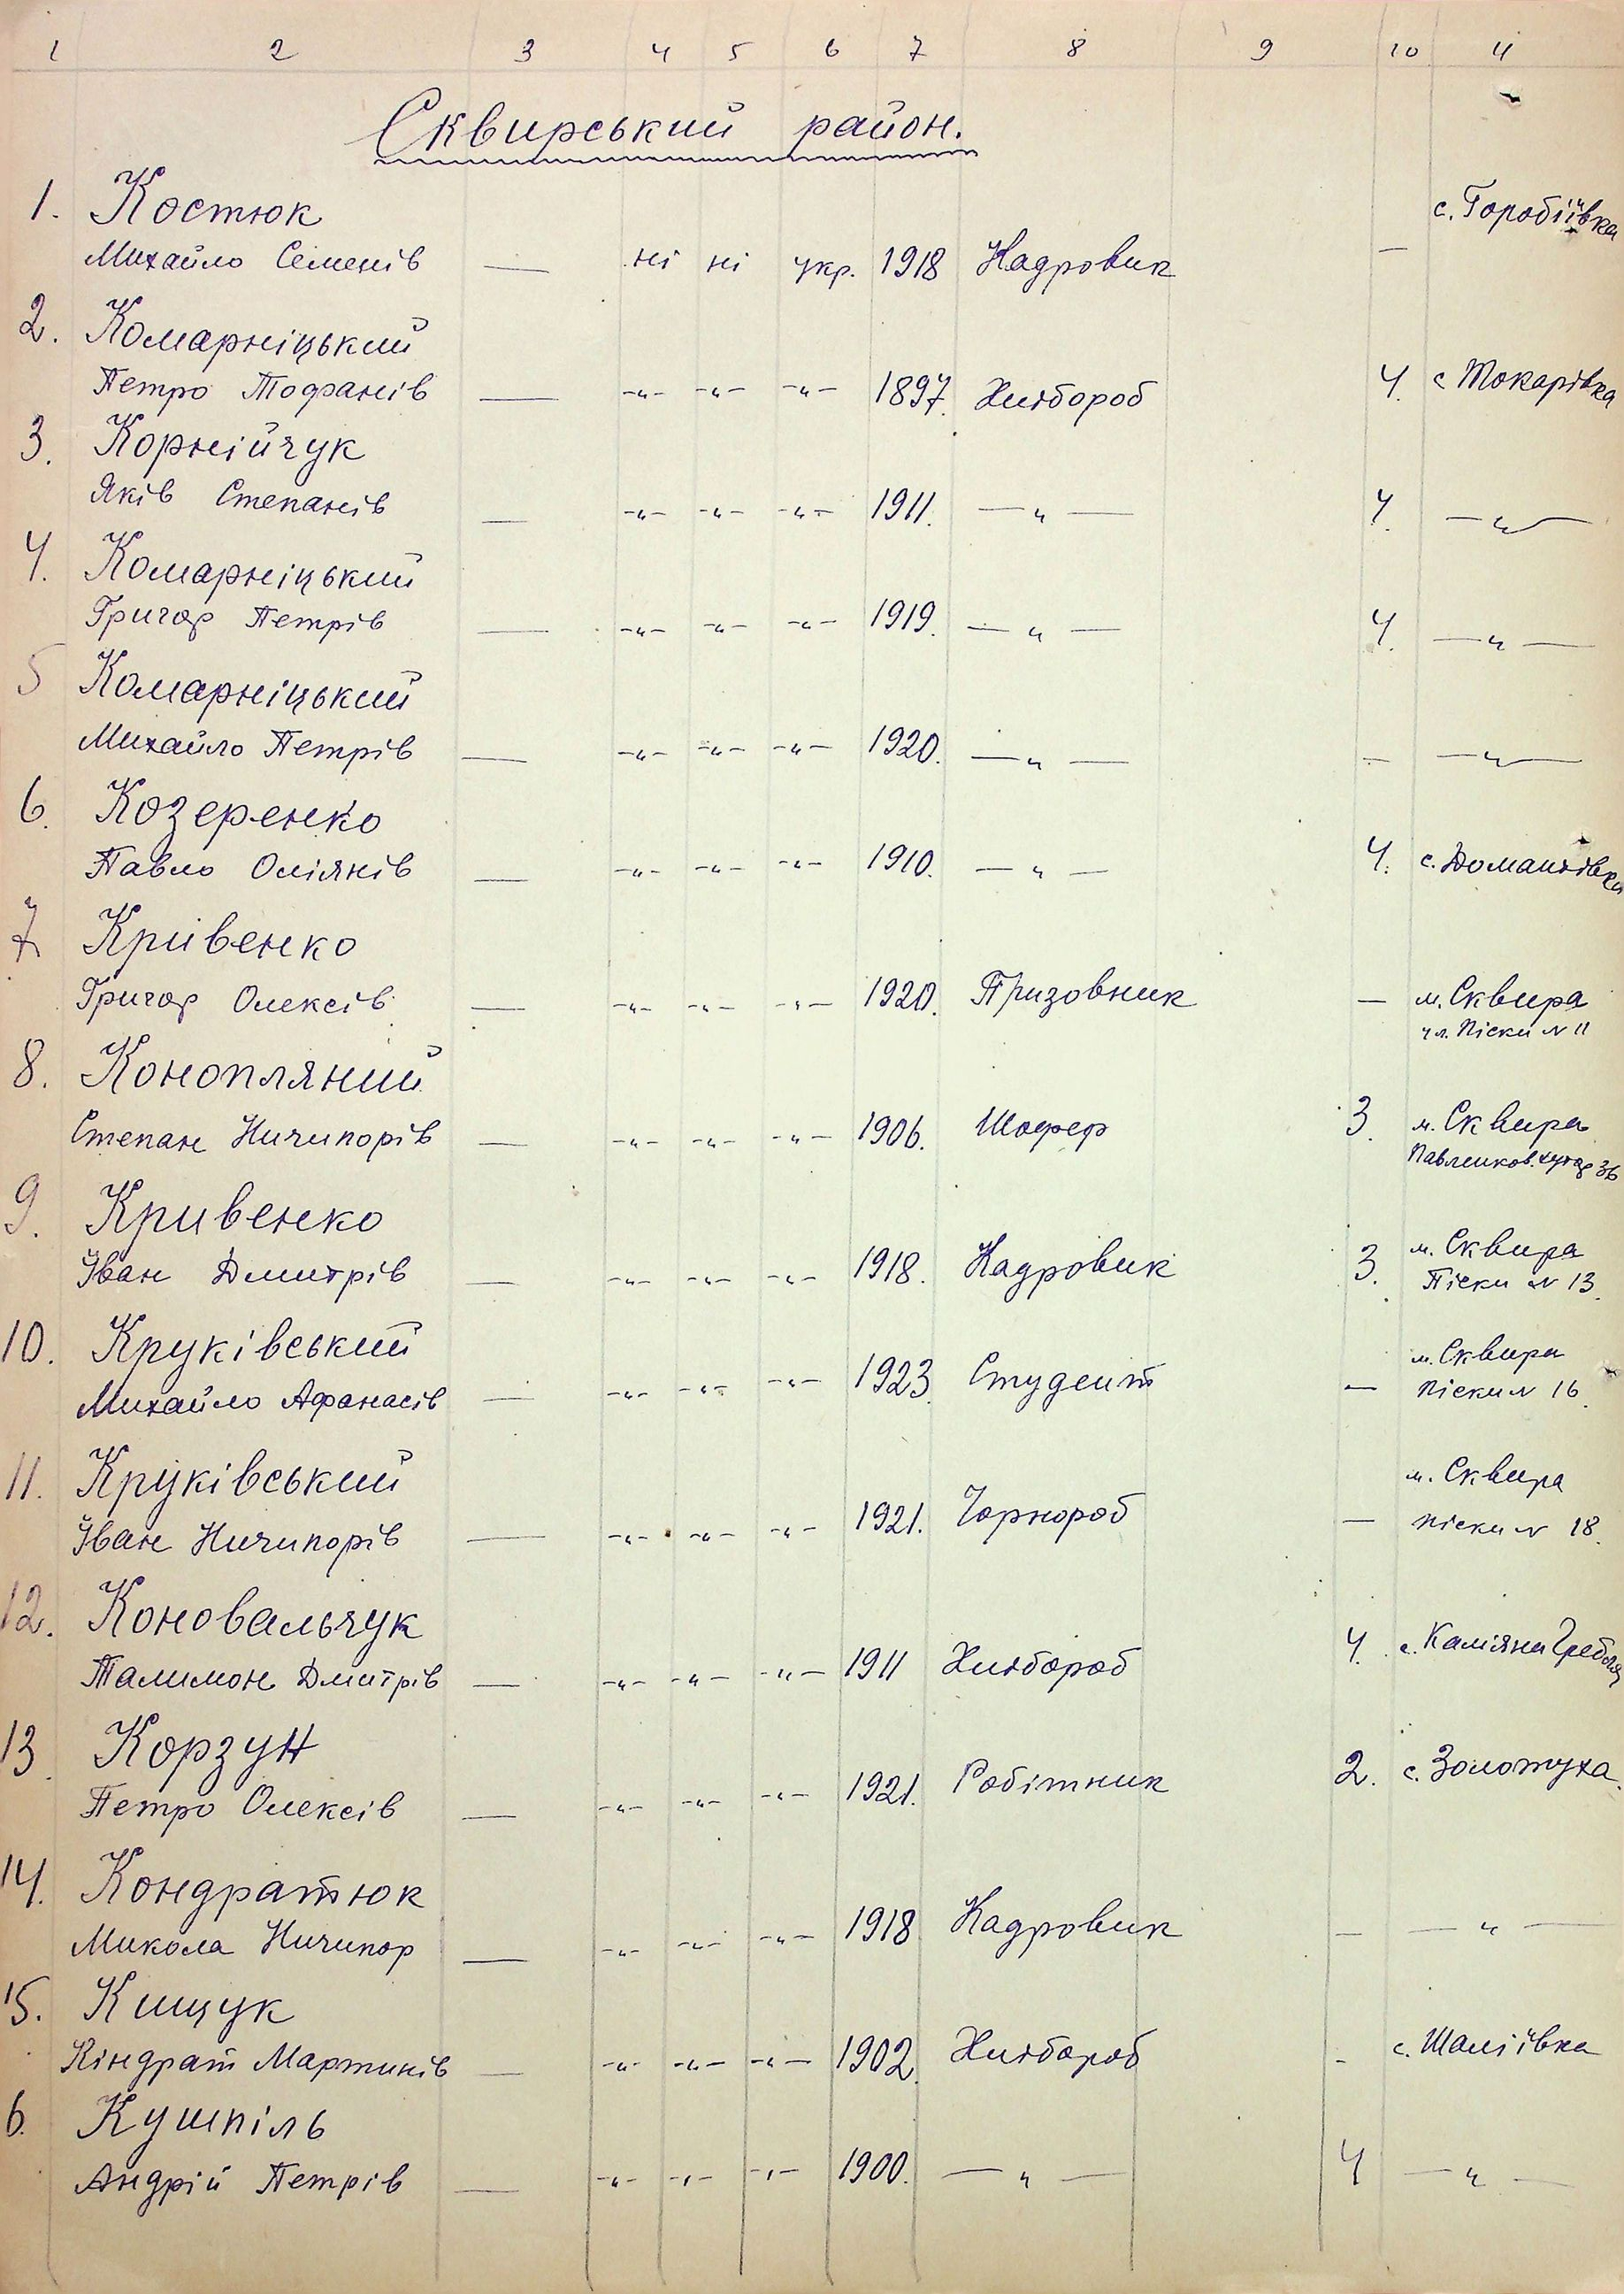 1 2 3 4 5 6 7 8 9 10 11
Сквирський район.
1. Костюк с. Горобіївка
Михайло Семенів — ні ні укр. 1918 Кадровик —
2. Комарніцький
Петро Тофанів — -„- -„- -„- 1897. Хлібороб 4. с Токарівка
3. Корнійчук
Яків Степанів — -„- -„- -„- 1911. —„— 4. —„—
4. Комарніцький
Григор Петрів — -„- -„- -„- 1919. —„— 4. —„—
5 Комарніцький
Михайло Петрів — -„- -„- -„- 1920. —„— — —„—
6. Козеренко
Павло Оліянів — -„- -„- -„- 1910. —„— 4. с. Домантівка
7 Кривенко
Григор Олексів — -„- -„- -„- 1920. Призовник — м. Сквира
ул. Піски № 11
8. Конопляний
Степан Ничипорів — -„- -„- -„- 1906. Шофер 3. м. Сквира
Павленков. хутор 36
9. Кривенко
Іван Дмитрів — -„- -„- -„- 1918. Кадровик 3. м. Сквира
Піски № 13.
10. Круківський м. Сквира
Михайло Афанасів — -„- -„- -„- 1923. Студент — піски № 16.
11. Круківський м. Сквира
Іван Ничипорів — -„- -„- -„- 1921. Чорнороб — піски № 18.
12. Коновальчук
Талимон Дмитрів — -„- -„- -„- 1911 Хлібороб 4. с. Каміяна Гребля
13. Корзун
Петро Олексів — -„- -„- -„- 1921. Робітник 2. с. Золотуха.
14. Кондратюк
Микола Ничипор — -„- -„- -„- 1918 Кадровик — —„—
15. Кищук
Кіндрат Мартинів — -„- -„- -„- 1902. Хлібороб - с. Шаліївка
6. Кушпіль
Андрій Петрів — -„- -„- -„- 1900. —„— 4 —„—